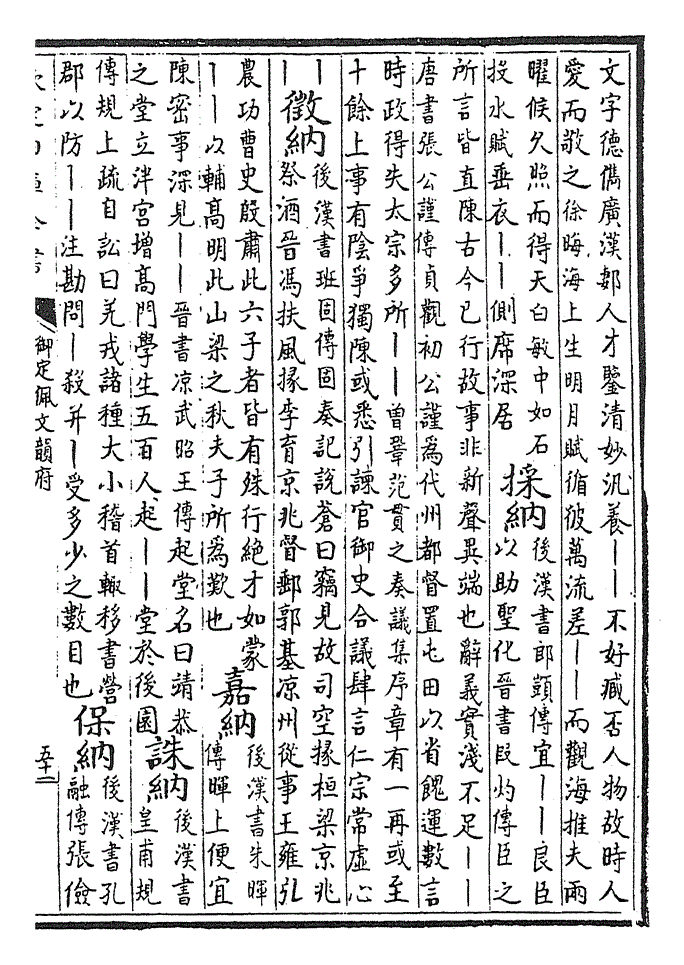 文字德儁廣漢鄀人才鑒清妙汎養丨丨不好臧否人物故時人
愛而敬之徐晦海上生明月賦循彼萬流差丨丨而觀海推夫兩
曜候久照而得天白敏中如石
投水賦垂衣丨丨側席深居
採納
後漢書郎顗傳宜丨丨良臣
以助聖化晉書段灼傳臣之
所言皆直陳古今已行故事非新聲異端也辭義實淺不足丨丨
唐書張公謹傳貞觀初公謹為代州都督置屯田以省餽運數言
時政得失太宗多所丨丨曾鞏范貫之奏議集序章有一再或至
十餘上事有陰爭獨陳或悉引諫官御史合議肆言仁宗常虛心
丨
丨
徵納
後漢書班固傳固奏記說蒼曰竊見故司空掾桓梁京兆
祭酒晉馮扶風掾李育京兆督郵郭基凉州從事王雍弘
農功曹史殷肅此六子者皆有殊行絕才如蒙
丨丨以輔高明此山梁之秋夫子所為歎也
嘉納
後漢書朱暉
傳暉上便宜
陳密事深見丨丨晉書凉武昭王傳起堂名曰靖恭
之堂立泮宮增高門學生五百人起丨丨堂於後園
誅納
後漢書
皇甫規
傳規上疏自訟曰羌戎諸種大小稽首輒移書營
郡以防丨丨注勘問丨殺并丨受多少之數目也
保納
後漢書孔
融傳張儉
欽定四庫全書
御定佩文韻府
五十二